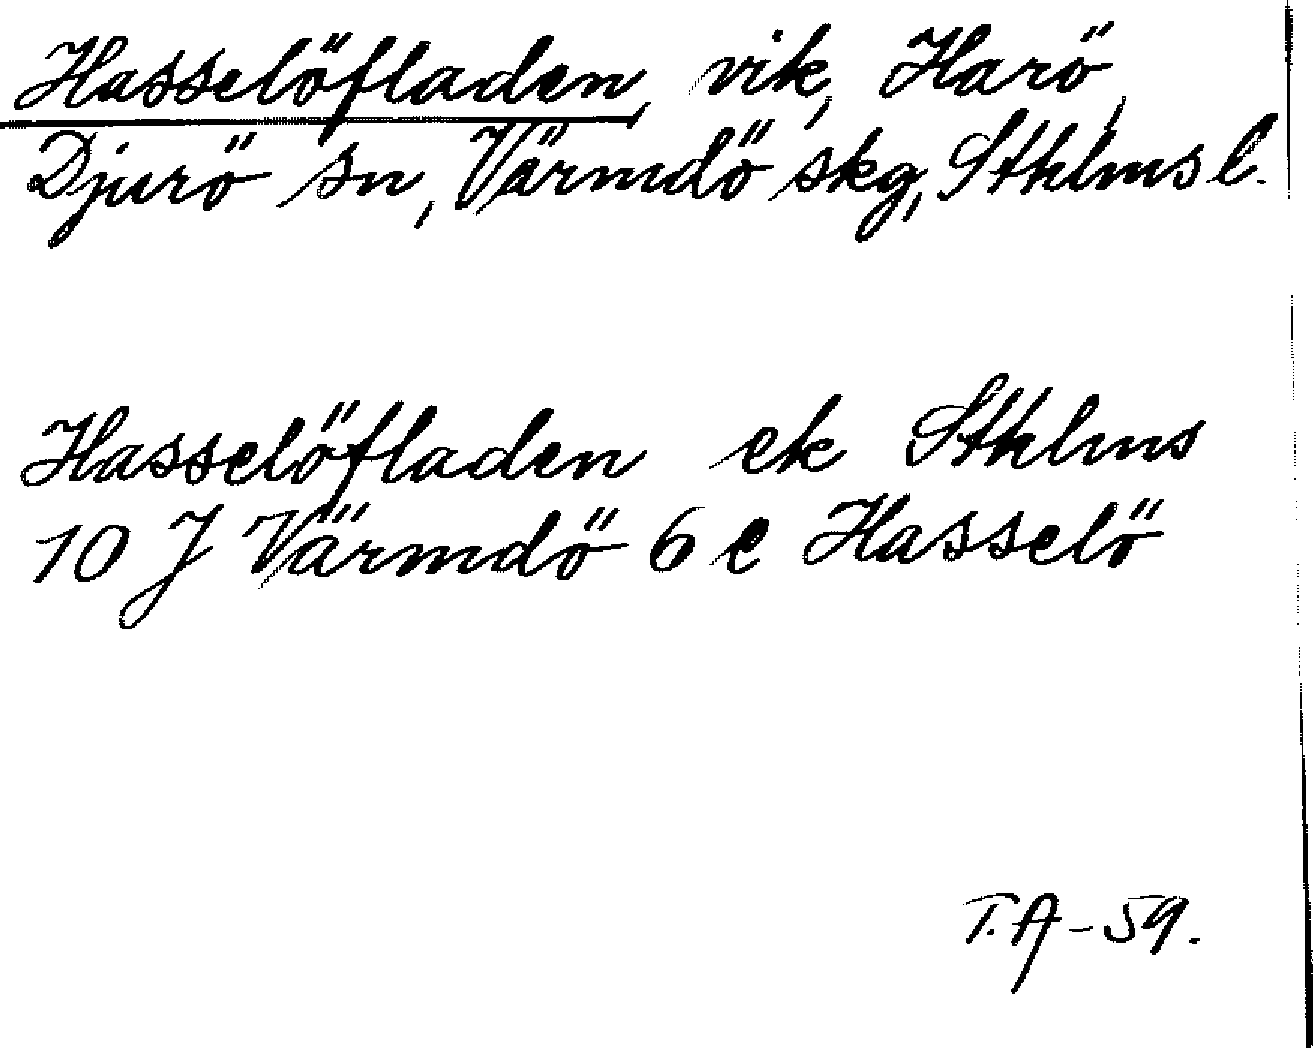 Hasselöfladen, vik, Harö,
Djurö sn, Värmdö skg, Sthlms l.
Hasselöfladen ek Sthlms
10 J Värmdö 6 e Hasselö
T.A-59.